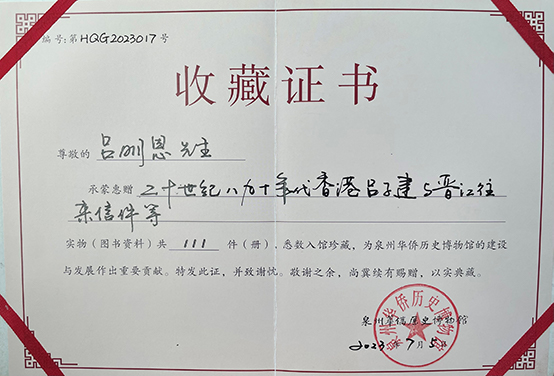 编号:第HQG2023017号
收藏证书
尊敬的 吕刚恩先生
承蒙惠赠 二十世纪八九十年代香港吕子建与晋江往
来信件等
实物(图书资料)共 111 件(册),悉数入馆珍藏,为泉州华侨历史博物馆的建设
与发展作出重要贡献。特发此证,并致谢忱。敬谢之余,尚冀续有赐赠,以实典藏。
泉州华侨历史博物馆
2023年7月5日
泉州华侨历史博物馆